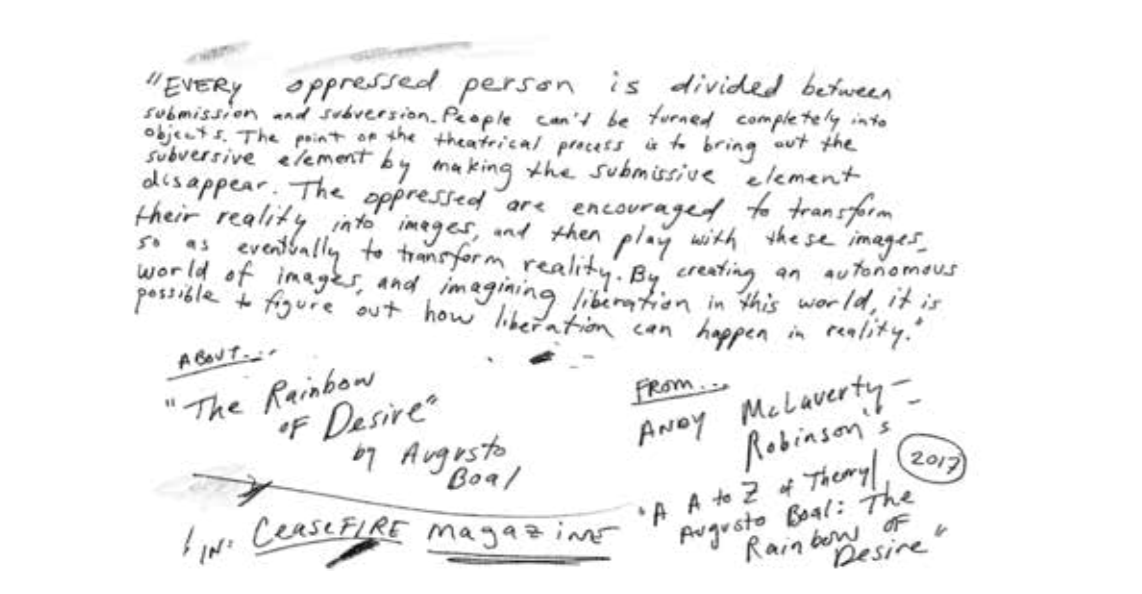 "EVERY oppressed person is divided between
submission and subversion. People can't be turned completely into
objects. The point of the theatrical process is to bring out the
subversive element by making the submissive element
disappear. The oppressed are encouraged to transform
their reality into images, and then play with these images,
so as eventually to transform reality. By creating an autonomous
world of images, and imagining liberation in this world, it is
possible to figure out how liberation can happen in reality."
ABOUT...
"The Rainbow
OF Desire"
by Augusto
Boal
FROM...
ANDY McLaverty-
Robinson's
"A A to Z of Theory|
Augusto Boal: The
Rainbow OF
Desire"
2017
IN: CeaseFIRE magazine